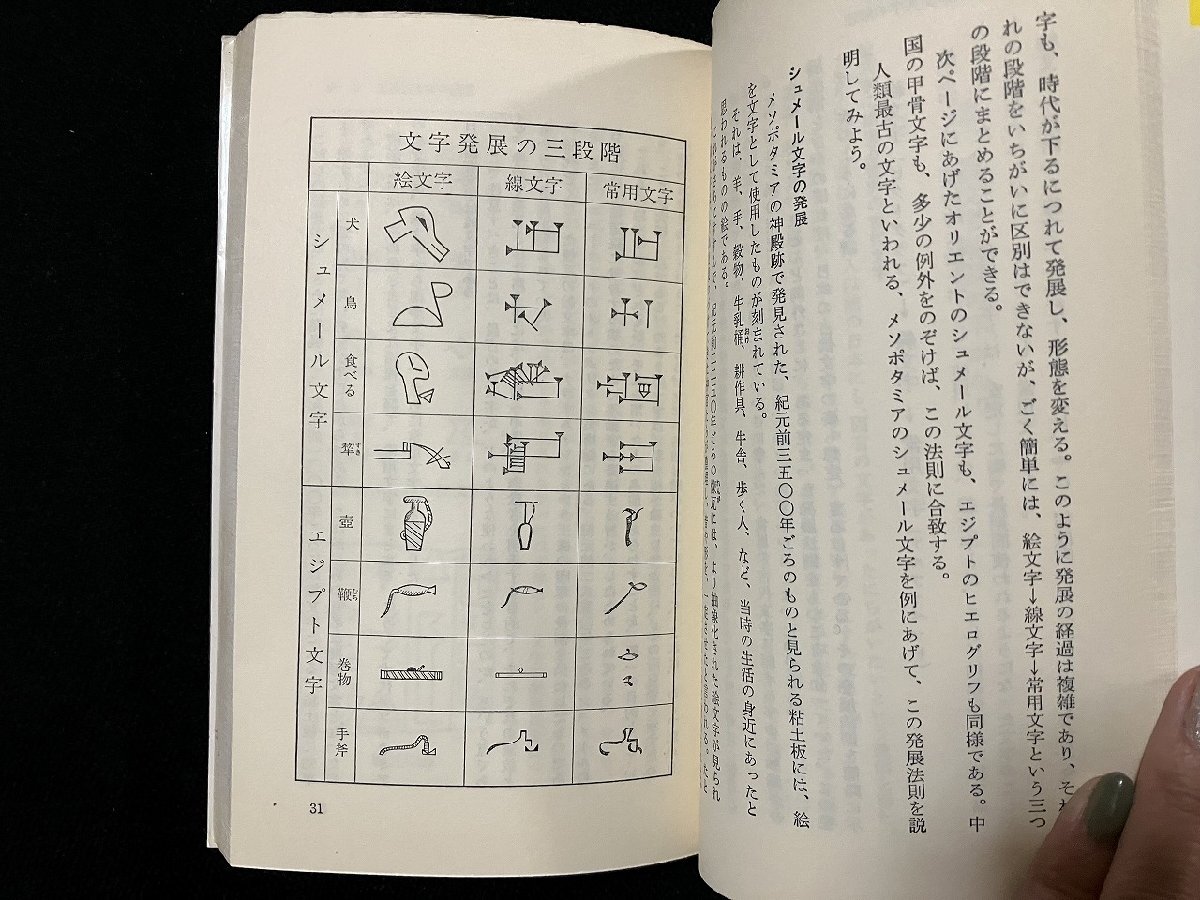 字も、時代が下るにつれて発展し、形態を変える。このように発展の経過は複雑であり、それ
れの段階をいちがいに区別はできないが、ごく簡単には、絵文字→線文字→常用文字という三つ
の段階にまとめることができる。
次ページにあげたオリエントのシュメール文字も、エジプトのヒエログリフも同様である。中
国の甲骨文字も、多少の例外をのぞけば、この法則に合致する。
人類最古の文字といわれる、メソポタミアのシュメール文字を例にあげて、この発展法則を説
明してみよう。
シュメール文字の発展
メソポタミアの神殿跡で発見された、紀元前三五〇〇年ごろのものと見られる粘土板には、絵
を文字として使用したものが刻まれている。
それは、羊、手、穀物、牛乳桶、耕作具、牛舎、歩く人、など、当時の生活の身近にあったと
思われるものの絵である。
より抽象化された絵文字が見られ
文字発展の三段階
絵文字
線文字
常用文字
シュメール文字
犬
鳥
食べる
犂
すき
エジプト文字
壺
鞭
むち
巻物
手斧
31